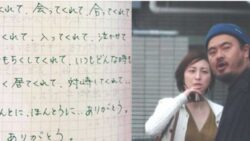 くれて、会ってくれて、会ってくれて
くれて、入って、泣かせて
もちくしてくれて、いつもどんな時も
く居てくれて、対峙してくれて…
んとに、ほんとうに…ありがとう。
ありがとう。